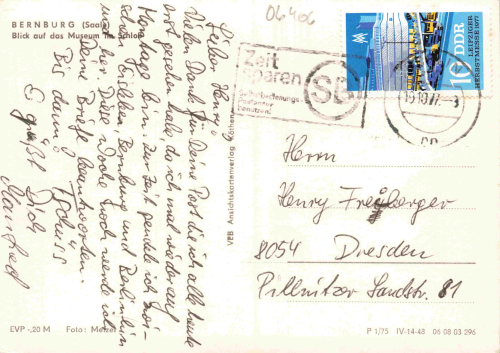 BERNBURG (Saale)
Blick auf das Museum im Schloß
06406
Zeit
sparen
SB
Selbstbedienungs-
Postämter
benutzen!
10 DDR
LEIPZIGER
HERBSTMESSE 1977
Lieber Henry!
Vielen Dank für Deine Post die ich alle heute
vorgefunden habe, da ich mal wieder auf
Montage bin. Zur Zeit pendele ich zwi-
schen Bernburg und Berlin hin
und her. Diese Woche noch werde ich
Deine Briefe beantworten.
Bis dann, Tschüss
Es grüßt Dich
Manfred
VEB Ansichtskartenverlag Köthen
Herrn
Henry Freiberger
8054 Dresden
Pillnitzer Landstr. 81
EVP -,20 M Foto: 
P 1/75 IV-14-48 06 08 03 296